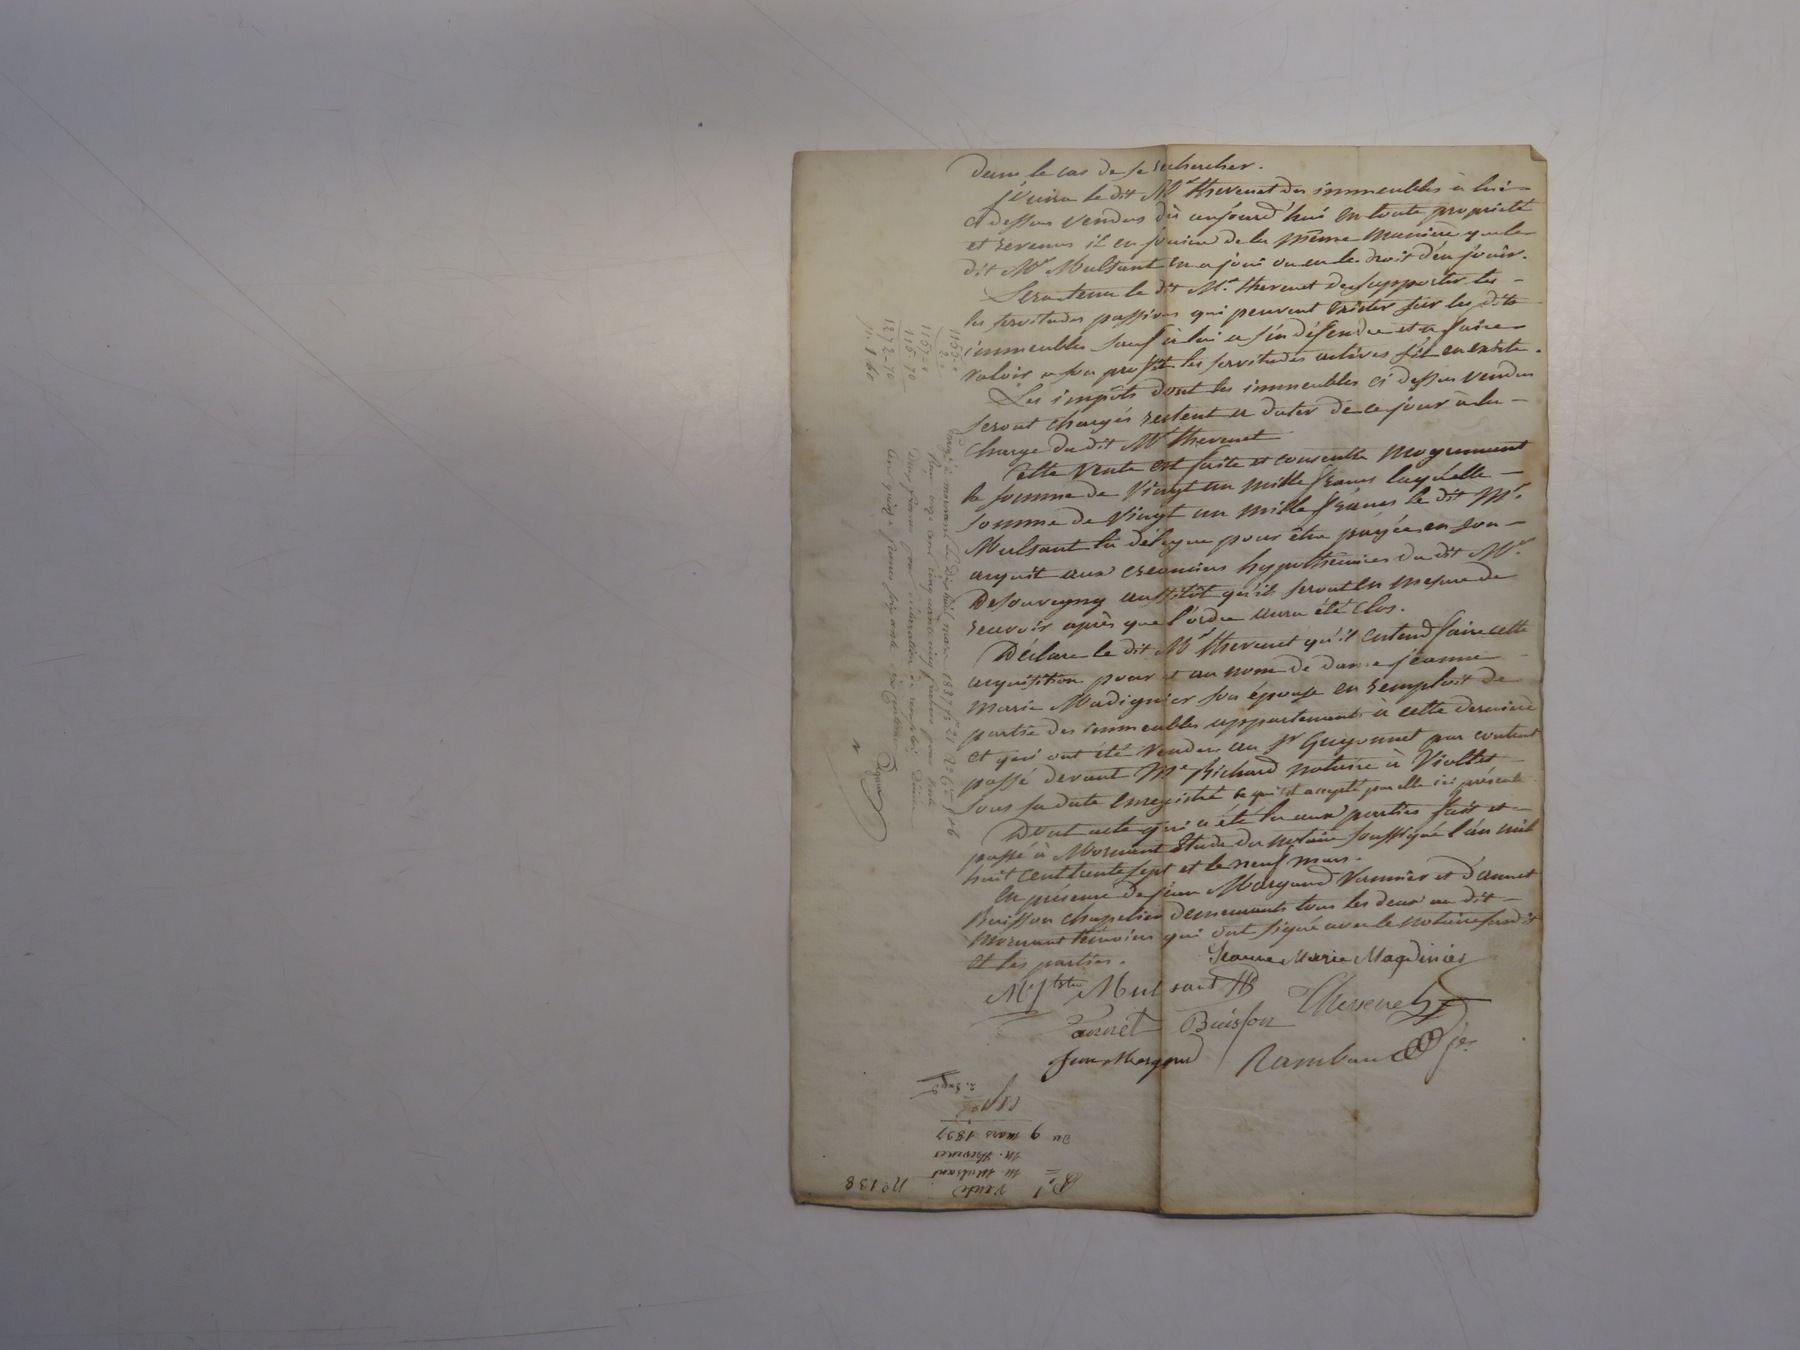 dans le cas de se rechercher.
jouira le dit Mr thevenet des immeubles à lui
ci dessus vendus dès aujourd'hui en toute propriété
et revenus il en jouira de la même manière que le
dit Mr Mulsant en a joui ou eu le droit d'en jouir.
Sera tenu le dit Mr thevenet de supporter les
les servitudes passives qui peuvent exister sur les dits
immeubles sauf à lui a s'en défendre et a faire
valoir a son profit les servitudes actives s'il en existe.
Les impôts dont les immeubles ci dessus vendus
seront chargés restent a dater de ce jour à la
charge du dit Mr thevenet
Cette vente est faite et consentie moyennant
la somme de vingt un mille francs laquelle
somme de vingt un mille francs le dit Mr.
Mulsant la délegue pour être payée en son
acquit aux creanciers hypothecaires du dit Mr.
Desouvegny aussitôt qu'ils seront en mesure de
recevoir après que l'ordre aura été clos.
Déclare le dit Mr thevenet qu'il entend faire cette
acquisition pour et au nom de dame jeanne
marie Madignier son épouse en remploit de
partie des immeubles appartenants à cette derniere
et qui ont été vendus au Sr Guyonnet par contrat
passé devant Me Richard notaire à Violtes
sous sa date enregistré ce qui est accepté par elle ici présente
Dont acte qui a été lu aux parties fait et
passé à Mornant étude du notaire soussigné l'an mil
huit cent trente sept et le neuf mars.
En présence de jean Margand Vannier et d'annet
Buisson chapelier demeurants tous les deux au dit
Mornant témoins qui ont signé avec le notaire susdit
et les parties.
Jeanne Marie Magdinier
Mulsant
Thevenet
annet Buisson
Jean Margand
Rambau
1155 "
115-70
1272-70
Enregistré à mornant le dix huit mars 1837 fo 21
Reçu onze cent cinquante cinq francs pour vente
deux francs pour déclaration de remploi, dixième
cent quinze francs soixante dix centimes
No 138
Vente
M. Mulsant
M. thevenet
Du 9 mars 1837